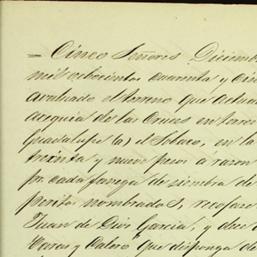 = Cinco Señores Diciemb
mil ochocientos cuarenta y cin
avaluado el terreno que actua
acequia de las Cruces en terre
Guadalupe (a) el Sobaco, en la
treinta y nueve pesos a razon
por cada fanega de siembra de
perito nombrado S, recofare
Juan de Dios Garcia, y dice
Varea y Valero que disponga de